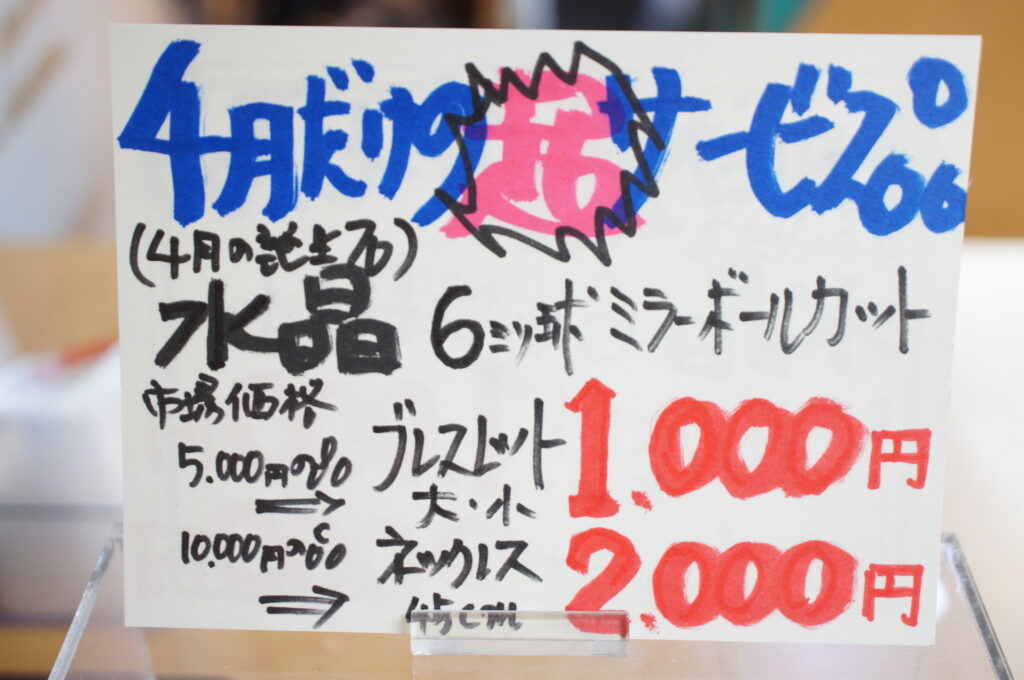 4月だけの超サービス品
(4月の誕生石)
水晶 6ミリ球 ミラーボールカット
市場価格
5.000円の品
⇒ ブレスレット 1.000円
大・小
10.000円の品
⇒ ネックレス 2.000円
45cm